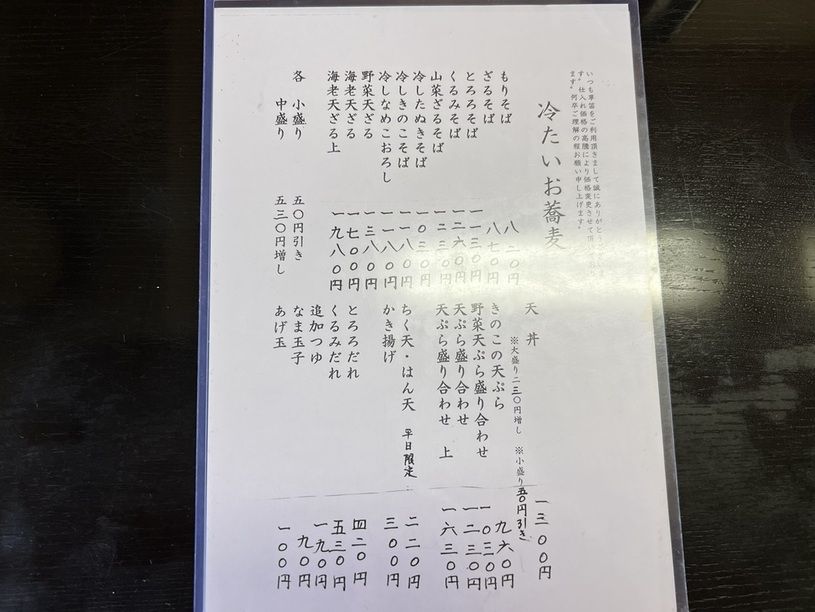 いつも草笛をご利用頂きまして誠にありがとうございま
す。仕入れ価格の高騰により価格変更させて頂いて
ます。何卒ご理解の程お願い申し上げます。
冷たいお蕎麦
もりそば 八二〇円
ざるそば 八七〇円
とろろそば 一一三〇円
くるみそば 一二六〇円
山菜ざるそば 一二三〇円
冷したぬきそば 一〇三〇円
冷しきのこそば 一一八〇円
冷しなめこおろし 一一八〇円
野菜天ざる 一三八〇円
海老天ざる 一七〇〇円
海老天ざる上 一九八〇円
各 小盛り 五〇円引き
中盛り 五三〇円増し
天丼 一三〇〇円
※大盛り二三〇円増し ※小盛り五〇円引き
きのこの天ぷら 九六〇円
野菜天ぷら盛り合わせ 一〇三〇円
天ぷら盛り合わせ 一二三〇円
天ぷら盛り合わせ 上 一六三〇円
ちく天・はん天 平日限定 二二〇円
かき揚げ 三〇〇円
とろろだれ 四二〇円
くるみだれ 五三〇円
追加つゆ 一九〇円
なま玉子 九〇円
あげ玉 一〇〇円